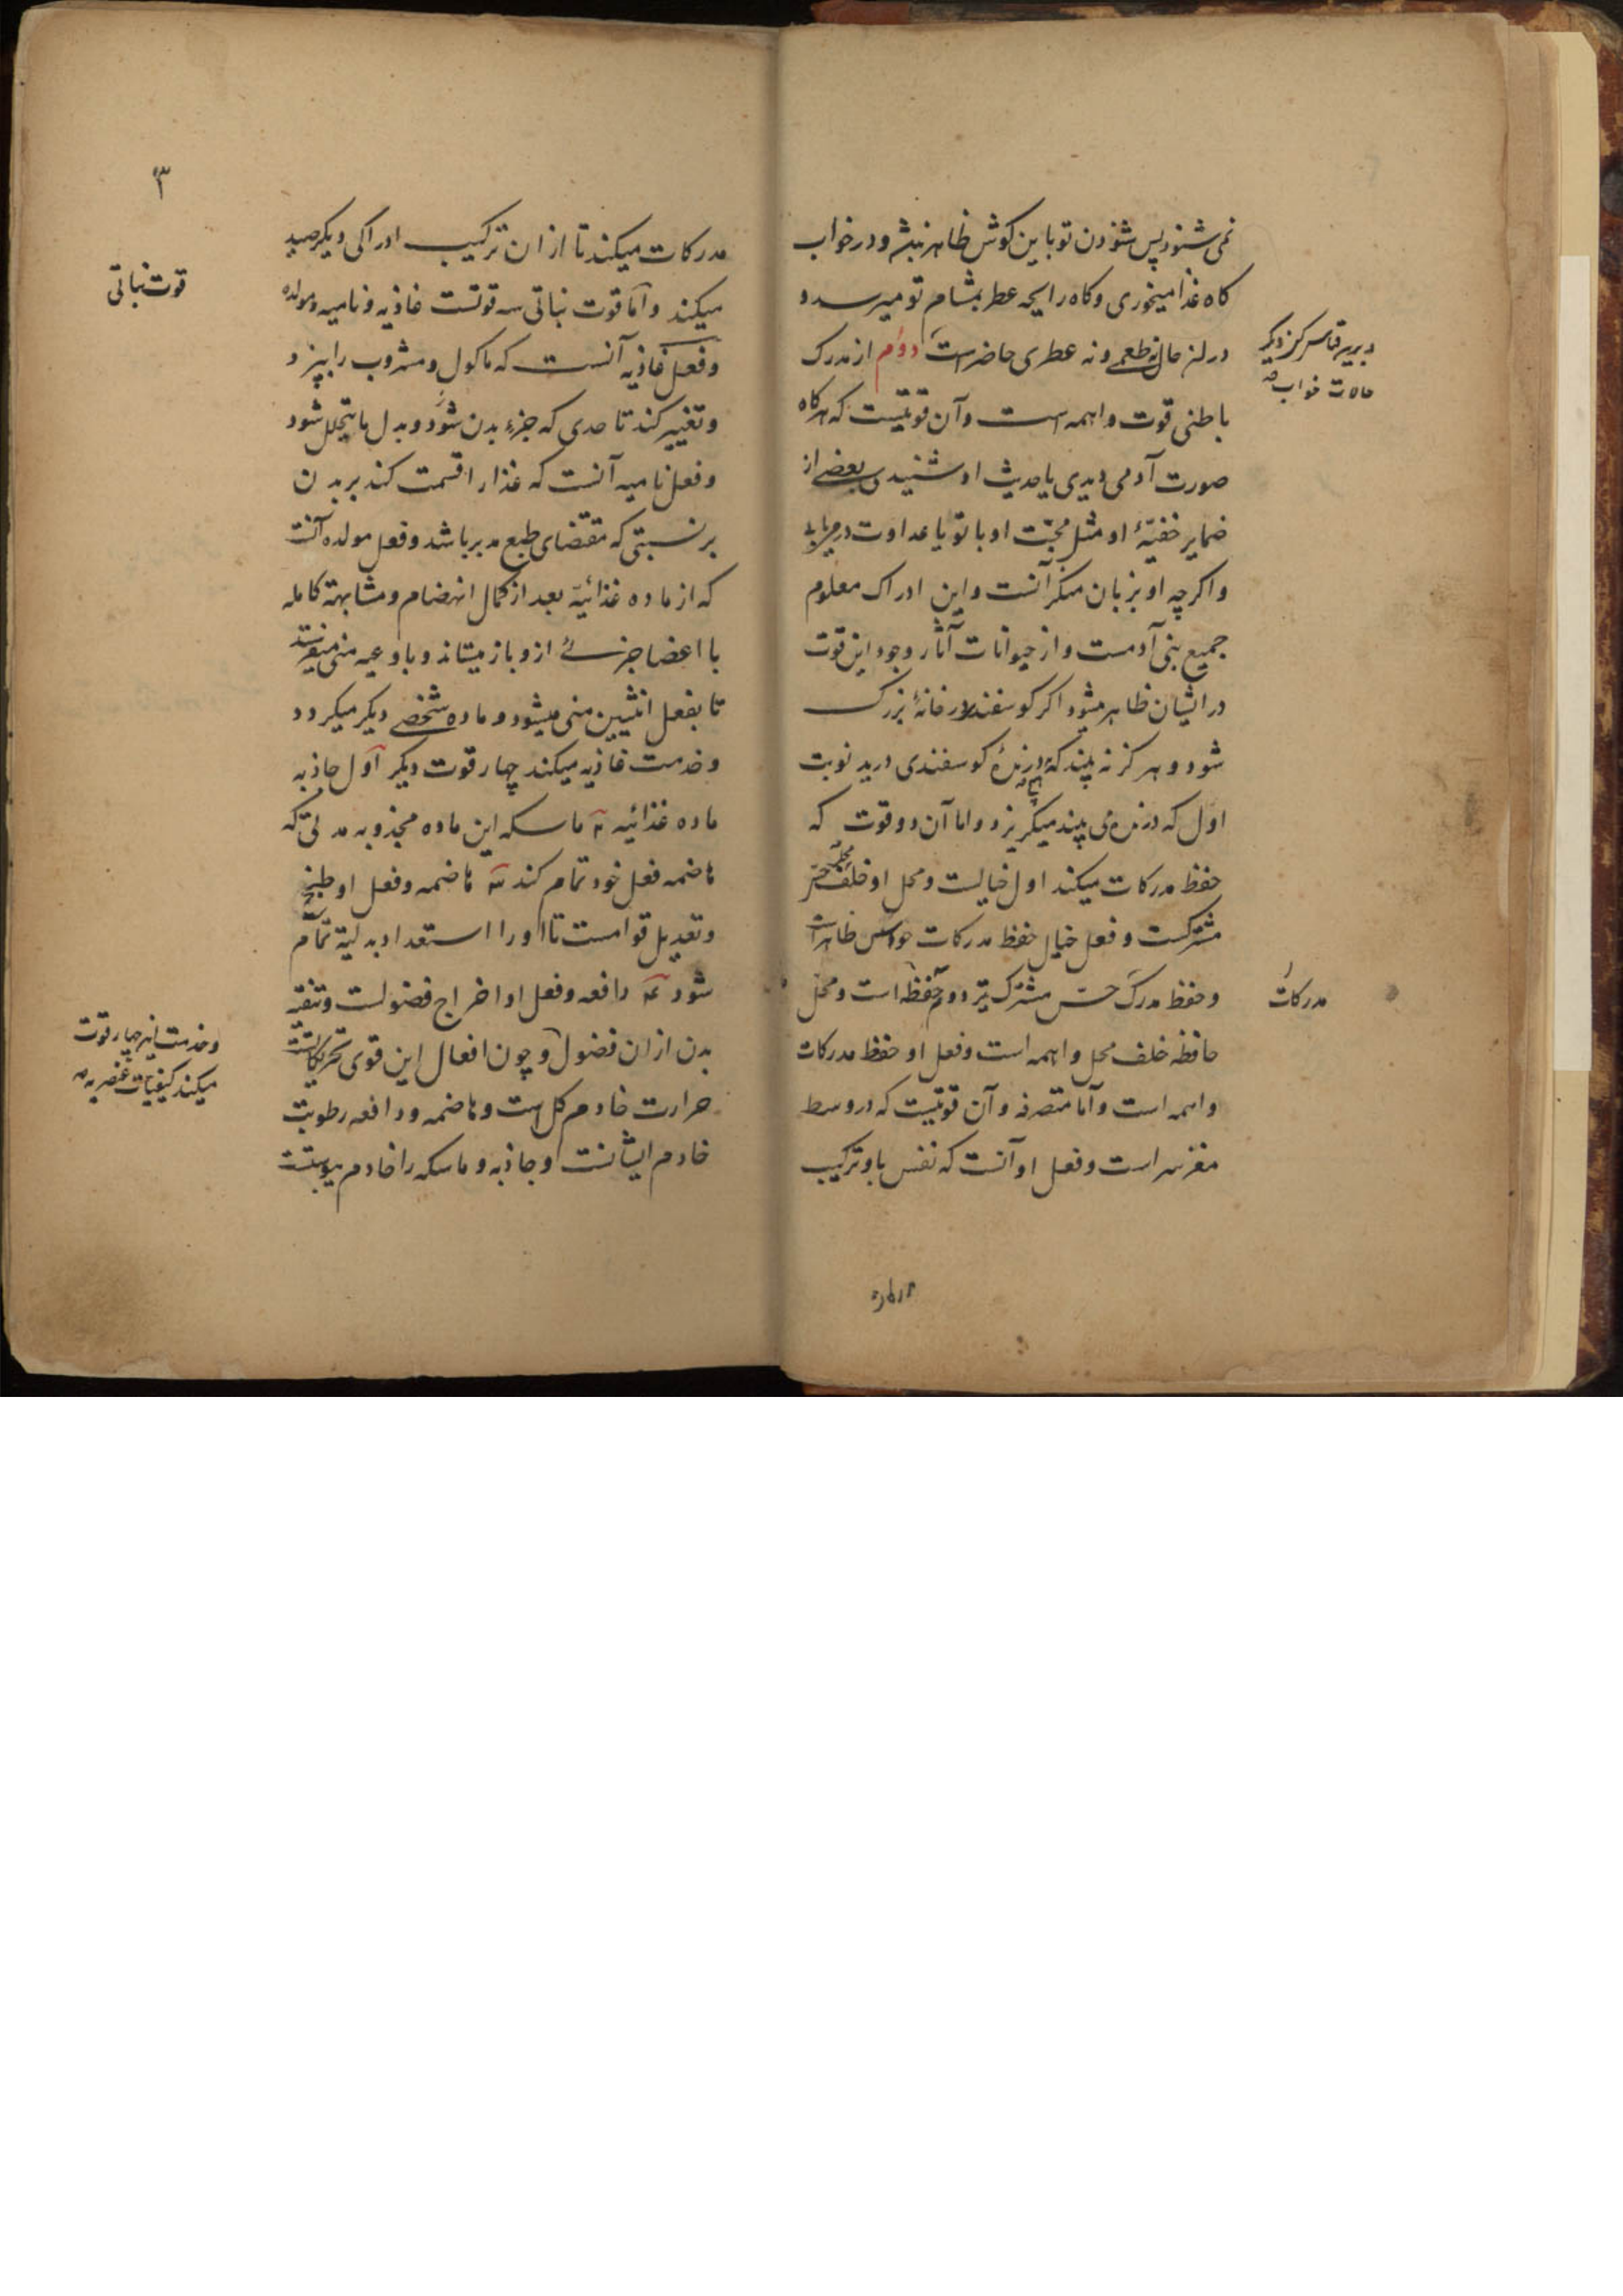 نمی شنود پس شنودن تو باین کوش ظاهر نباشد ودر خواب
کاه غذا میخوری وکاه رایحه عطر بمشام تو میرسد و
درین حال نه طعمی ونه عطری حاضر است دوم از مدرک
باطنی قوت واهمه است وآن قوتیست که هرکاه
صورت آدمی دیدی یا حدیث او شنیدی بعضی از
ضمایر خفیّهٔ او مثل محبّت او با تو یا عداوت در می یابد
واکرچه او بزبان منکر آنست واین ادراک معلوم
جمیع بنی آدمست واز حیوانات آثار وجود این قوت
در ایشان ظاهر میشود اکر کوسفند در خانهٔ بزرک
شود وهرکز نه بیند که درندهٔ کوسفندی درید نوبت
اول که درنده ی بیند میکریزد واما آن دو قوت که
حفظ مدرکات میکند اول خیالست ومحل او خلف محل حس
مشترکست وفعل خیال حفظ مدرکات حواس ظاهر است
وحفظ مدرک حس مشترک نیز دوم حافظه است ومحل
حافظه خلف محل واهمه است وفعل او حفظ مدرکات
واهمه است وامّا متصرفه وآن قوتیست که در وسط
مغز سر است وفعل او آنست که نفس باو ترکیب
وبریر قیاس کن دیکر
حالات خواب صح
مدرکات
۳
مدرکات میکند تا از ان ترکیب ادراکی دیکر صید
میکند وامّا قوت نباتی سه قوتست غاذیه ونامیه ومولده
وفعل غاذیه آنست که ماکول ومشروب را بپزد
وتغییر کند تا حدی که جزء بدن شود وبدل ما یتحلل شود
وفعل نامیه آنست که غذا را قسمت کند بر بدن
بر نسبتی که مقتضای طبع مدبر باشد وفعل مولده آنست
که از ماده غذائیّه بعد از کمال انهضام ومشابهة کامله
با اعضا جزئی ازو باز میستاند وباوعیه منی میفرستد
تا بفعل انثیین منی میشود وماده شخصی دیکر میکردد
وخدمت غاذیه میکند چهار قوت دیکر اول جاذبه
ماده غذائیه ۲ ماسکه این ماده مجذوبه مدتی که
هاضمه فعل خود تمام کند ۳ هاضمه وفعل او طبخ
وتعدیل قوامست تا او را استعداد بدلیّة تمام
شود ۴ دافعه وفعل او اخراج فضولست وتنقیه
بدن از ان فضول وچون افعال این قوی تحریکاتست
حرارت خادم کل است وهاضمه ودافعه رطوبت
خادم ایشانست وجاذبه وماسکه را خادم یبوستست
قوت نباتی
وخدمت این چهار قوت
میکند کیفیات عنصریه صح